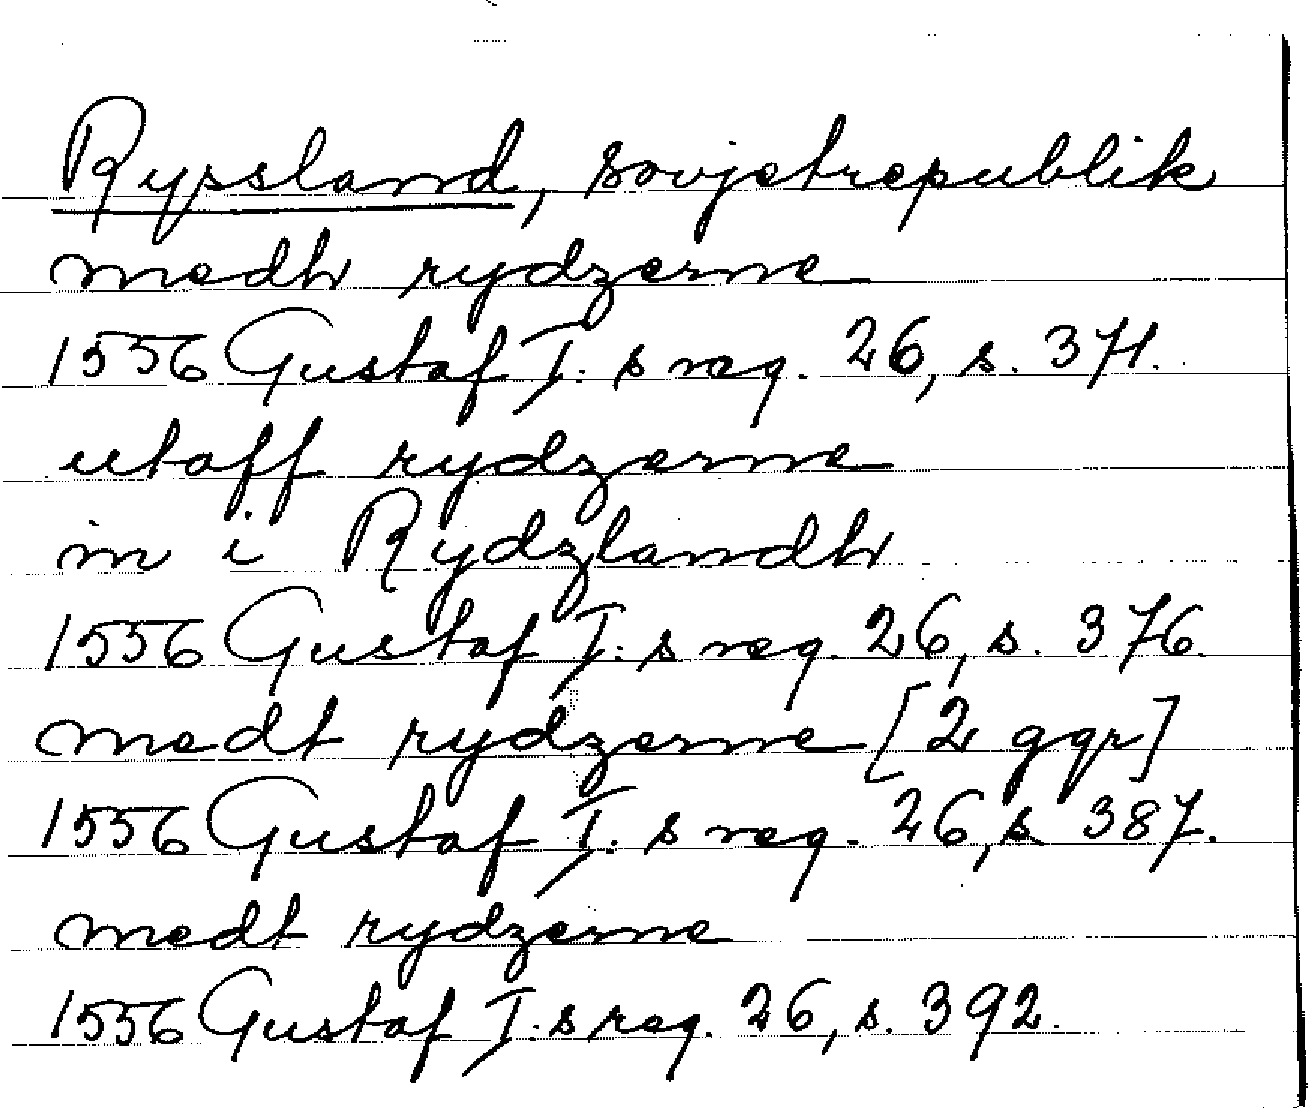 Ryssland, sovjetrepublik
medh rydzerne
1556 Gustaf I:s reg. 26, s. 371.
utaff rydzerne
in i Rydzlandh
1556 Gustaf I:s reg. 26, s. 376.
medt rydzerne [2 ggr]
1556 Gustaf I:s reg. 26, s. 387.
medt rydzerne
1556 Gustaf I:s reg. 26, s. 392.